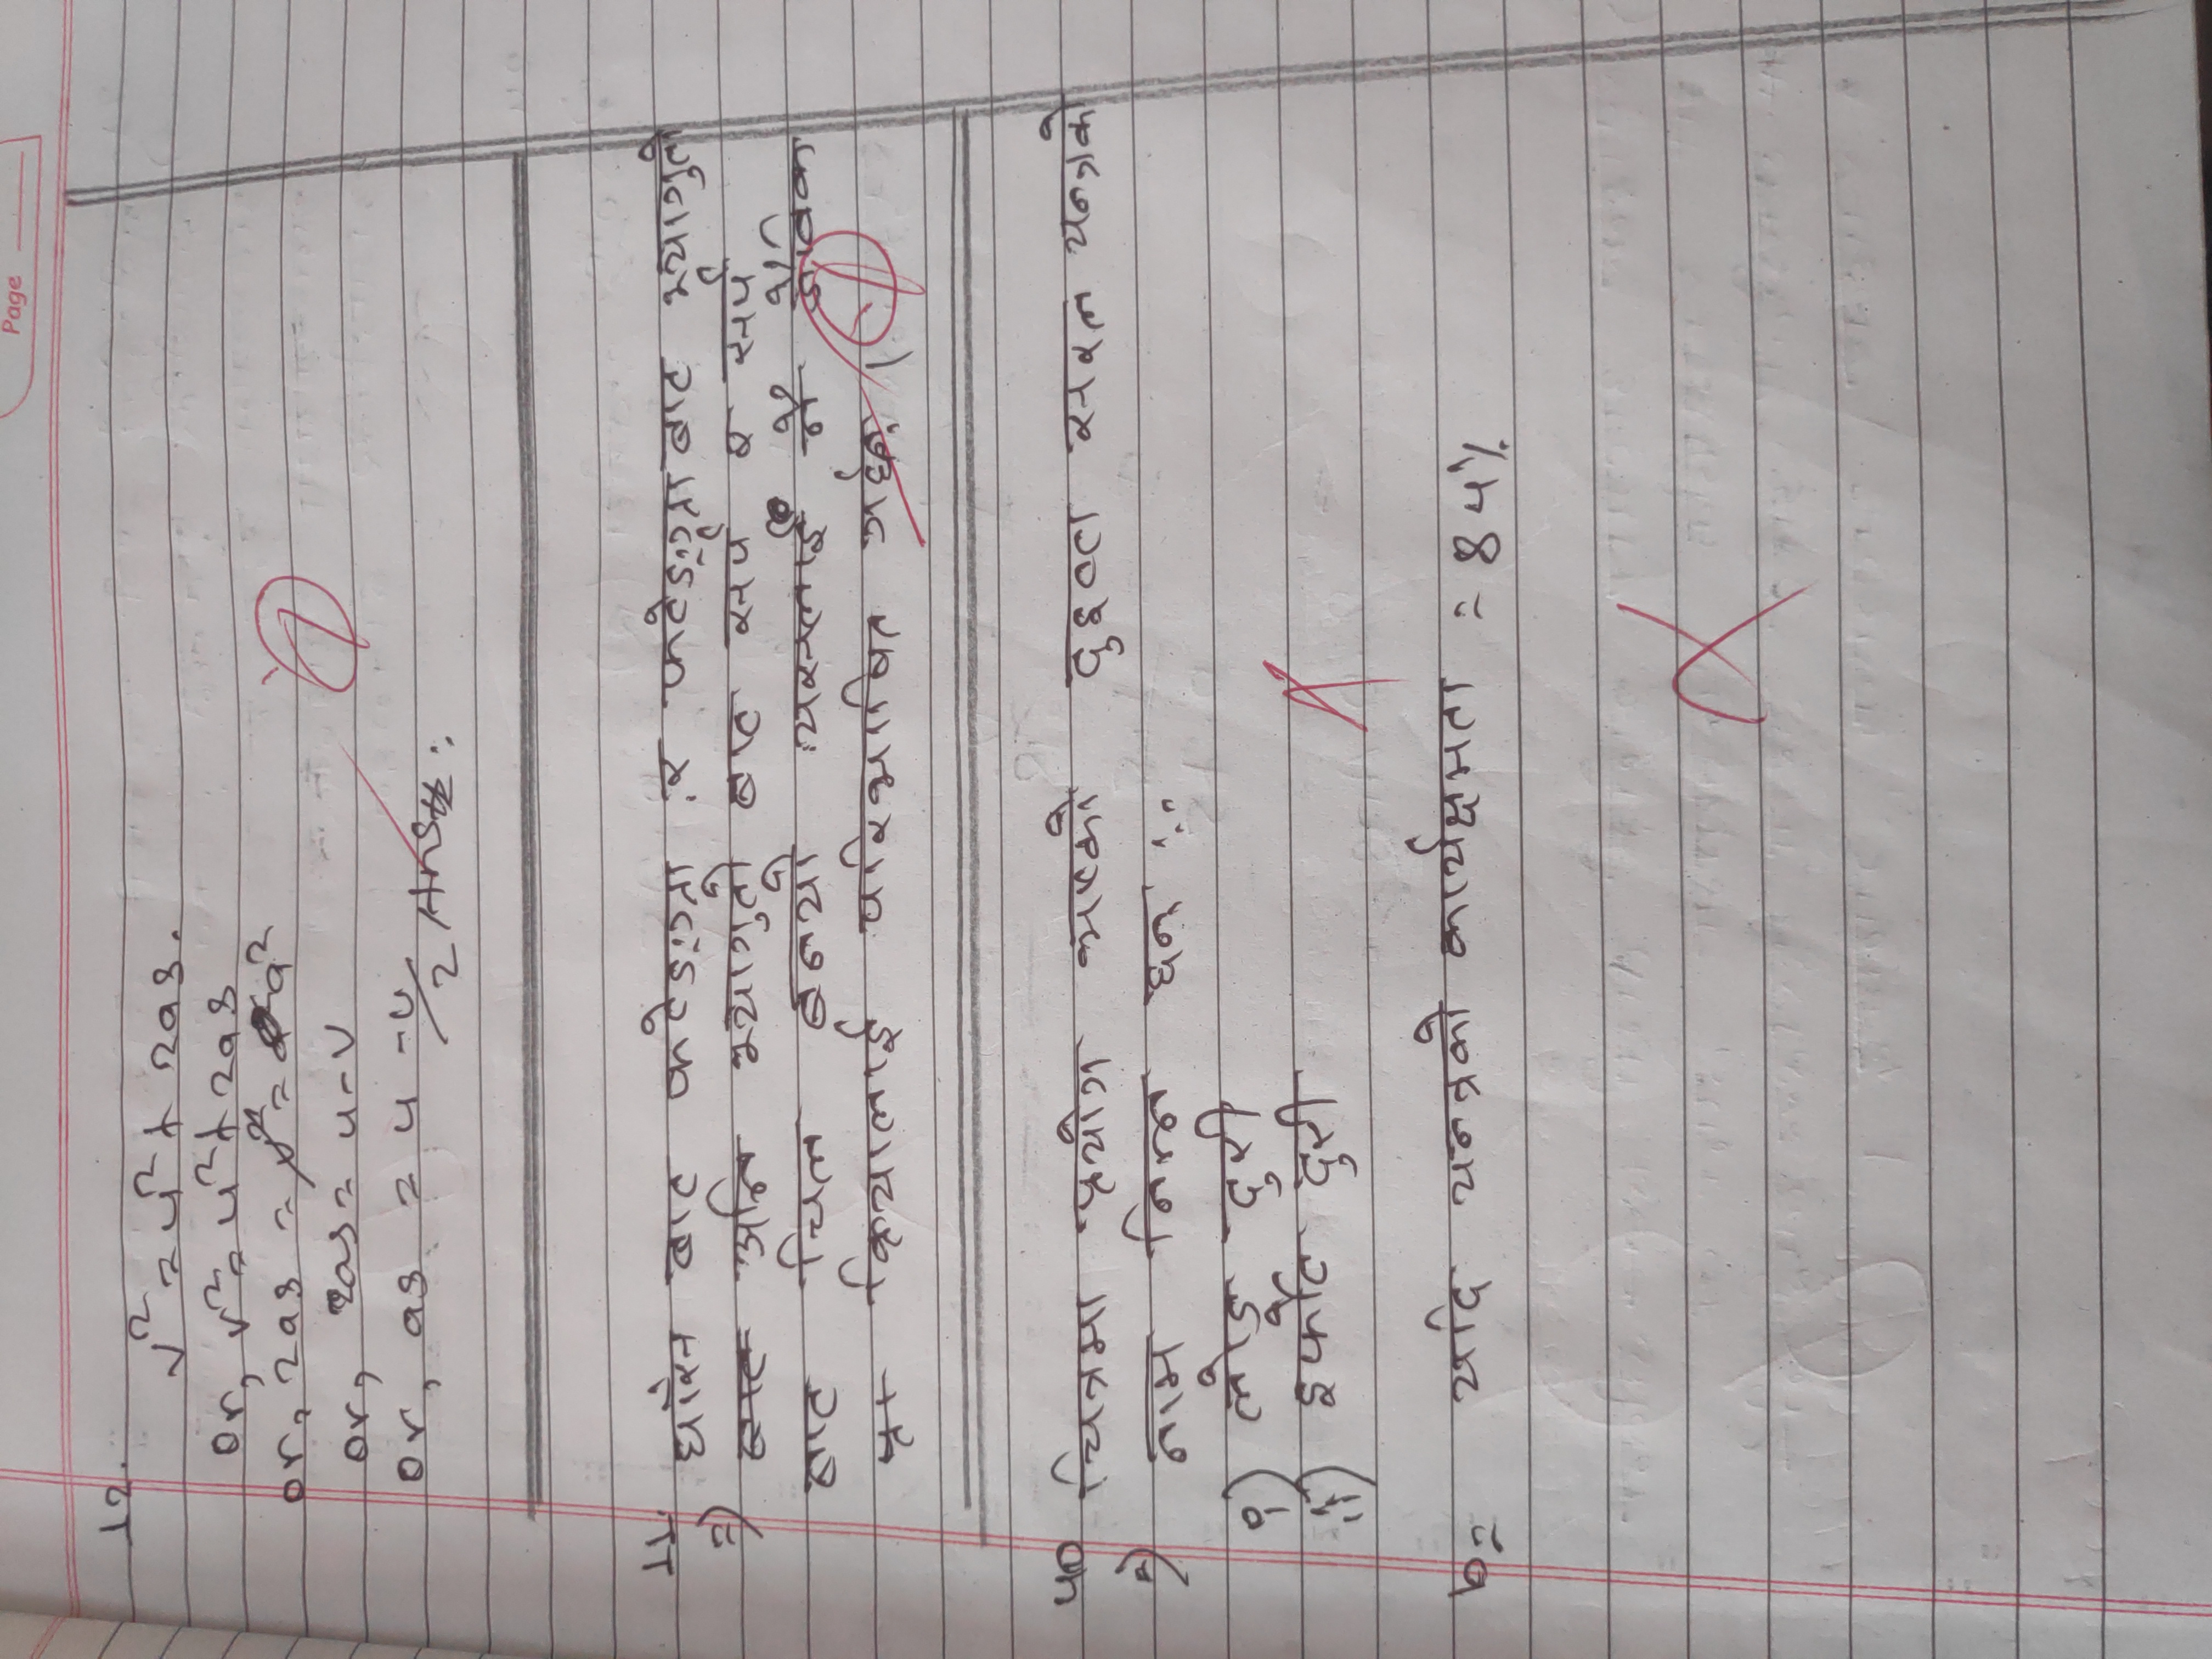 Page
12.
v² = u² + 2as.
or, v² = u² + 2as
or, 2as = v² = a²
or, 2as = u - v
or, as = u - v/2 Ans:
11.
घाँस बाट फटेङ्ग्रा र फटेङ्ग्रा बाट भ्यागुतो
=) अनि भ्यागुतो बाट सर्प र सर्प
बाट चिल बनयो यसलाई नै जैविक
क्रियालाई परिभाषित गर्छन् ।
चित्रमा प्रयोग भएको दुइटा सरल यन्त्रको
=) नाम निम्न छन् :
i) लोड दुरी
ii) इर्फोट दुरी
b = यदि यन्त्रको कार्यक्षमता = 84%